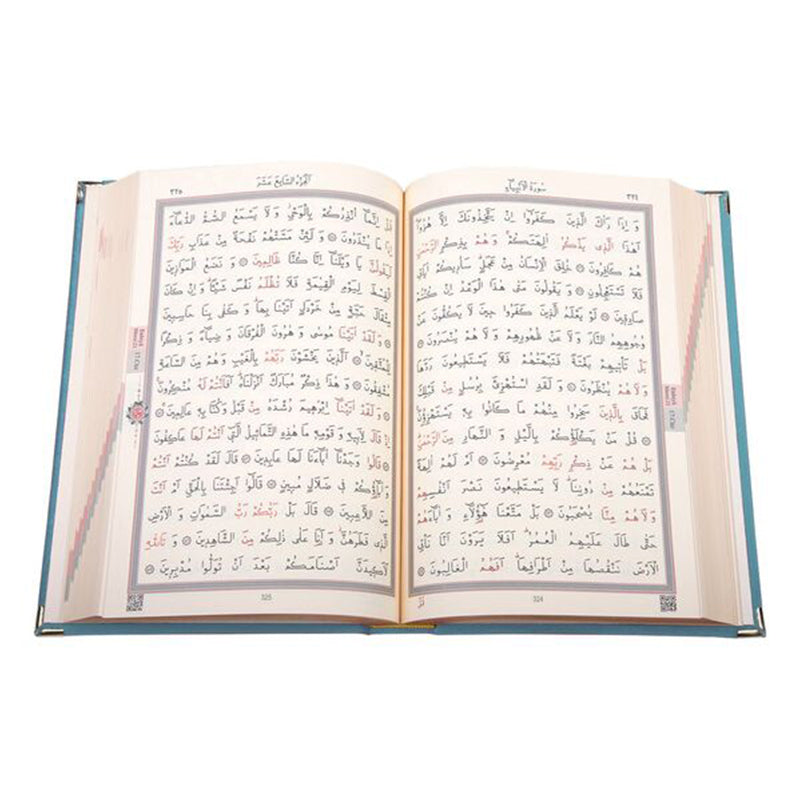 سورة الأنبياء ٣٢٤
وَ اِذَا رَاٰكَ الَّذ۪ينَ كَفَرُٓوا اِنْ يَتَّخِذُونَكَ اِلَّا هُزُوًا
اَهٰذَا الَّذ۪ي يَذْكُرُ اٰلِهَتَكُمْ وَهُمْ بِذِكْرِ الرَّحْمٰنِ
هُمْ كَافِرُونَ خُلِقَ الْاِنْسَانُ مِنْ عَجَلٍ سَاُر۪يكُمْ اٰيَات۪ي
فَلَا تَسْتَعْجِلُونِ وَ يَقُولُونَ مَتٰى هٰذَا الْوَعْدُ اِنْ كُنْتُمْ
صَادِق۪ينَ لَوْ يَعْلَمُ الَّذ۪ينَ كَفَرُوا ح۪ينَ لَا يَكُفُّونَ عَنْ
وُجُوهِهِمُ النَّارَ وَ لَا عَنْ ظُهُورِهِمْ وَ لَا هُمْ يُنْصَرُونَ
بَلْ تَأْت۪يهِمْ بَغْتَةً فَتَبْهَتُهُمْ فَلَا يَسْتَط۪يعُونَ رَدَّهَا
وَلَا هُمْ يُنْظَرُونَ وَ لَقَدِ اسْتُهْزِئَ بِرُسُلٍ مِنْ قَبْلِكَ
فَحَاقَ بِالَّذ۪ينَ سَخِرُوا مِنْهُمْ مَا كَانُوا بِه۪ يَسْتَهْزِؤُنَ
قُلْ مَنْ يَكْلَؤُكُمْ بِالَّيْلِ وَ النَّهَارِ مِنَ الرَّحْمٰنِ
بَلْ هُمْ عَنْ ذِكْرِ رَبِّهِمْ مُعْرِضُونَ اَمْ لَهُمْ اٰلِهَةٌ
تَمْنَعُهُمْ مِنْ دُونِنَا لَا يَسْتَط۪يعُونَ نَصْرَ اَنْفُسِهِمْ
وَ لَا هُمْ مِنَّا يُصْحَبُونَ بَلْ مَتَّعْنَا هٰٓؤُلَٓاءِ وَ اٰبَٓاءَهُمْ
حَتّٰى طَالَ عَلَيْهِمُ الْعُمُرُ اَفَلَا يَرَوْنَ اَنَّا نَأْتِي
الْاَرْضَ نَنْقُصُهَا مِنْ اَطْرَافِهَا اَفَهُمُ الْغَالِبُونَ
قُلْ
324
الجزء السابع عشر ٣٢٥
قُلْ اِنَّمَٓا اُنْذِرُكُمْ بِالْوَحْيِ وَ لَا يَسْمَعُ الصُّمُّ الدُّعَٓاءَ
اِذَا مَا يُنْذَرُونَ وَ لَئِنْ مَسَّتْهُمْ نَفْحَةٌ مِنْ عَذَابِ رَبِّكَ
لَيَقُولُنَّ يَا وَيْلَنَٓا اِنَّا كُنَّا ظَالِم۪ينَ وَ نَضَعُ الْمَوَاز۪ينَ
الْقِسْطَ لِيَوْمِ الْقِيٰمَةِ فَلَا تُظْلَمُ نَفْسٌ شَيْـًٔا وَ اِنْ كَانَ
مِثْقَالَ حَبَّةٍ مِنْ خَرْدَلٍ اَتَيْنَا بِهَا وَ كَفٰى بِنَا حَاسِب۪ينَ
وَ لَقَدْ اٰتَيْنَا مُوسٰى وَ هٰرُونَ الْفُرْقَانَ وَ ضِيَٓاءً وَ ذِكْرًا
لِلْمُتَّق۪ينَ اَلَّذ۪ينَ يَخْشَوْنَ رَبَّهُمْ بِالْغَيْبِ وَ هُمْ مِنَ السَّاعَةِ
مُشْفِقُونَ وَ هٰذَا ذِكْرٌ مُبَارَكٌ اَنْزَلْنَاهُ اَفَاَنْتُمْ لَهُ مُنْكِرُونَ
وَ لَقَدْ اٰتَيْنَٓا اِبْرٰه۪يمَ رُشْدَهُ مِنْ قَبْلُ وَ كُنَّا بِه۪ عَالِم۪ينَ
اِذْ قَالَ لِاَب۪يهِ وَ قَوْمِه۪ مَا هٰذِهِ التَّمَاث۪يلُ الَّت۪ٓي اَنْتُمْ لَهَا عَاكِفُونَ
قَالُوا وَجَدْنَٓا اٰبَٓاءَنَا لَهَا عَابِد۪ينَ قَالَ لَقَدْ كُنْتُمْ اَنْتُمْ
وَ اٰبَٓاؤُ۬كُمْ ف۪ي ضَلَالٍ مُب۪ينٍ قَالُٓوا اَجِئْتَنَا بِالْحَقِّ اَمْ اَنْتَ
مِنَ اللَّاعِب۪ينَ قَالَ بَلْ رَبُّكُمْ رَبُّ السَّمٰوَاتِ وَ الْاَرْضِ
الَّذ۪ي فَطَرَهُنَّ وَ اَنَا۬ عَلٰى ذٰلِكُمْ مِنَ الشَّاهِد۪ينَ وَ تَاللّٰهِ
لَاَك۪يدَنَّ اَصْنَامَكُمْ بَعْدَ اَنْ تُوَلُّوا مُدْبِر۪ينَ
325